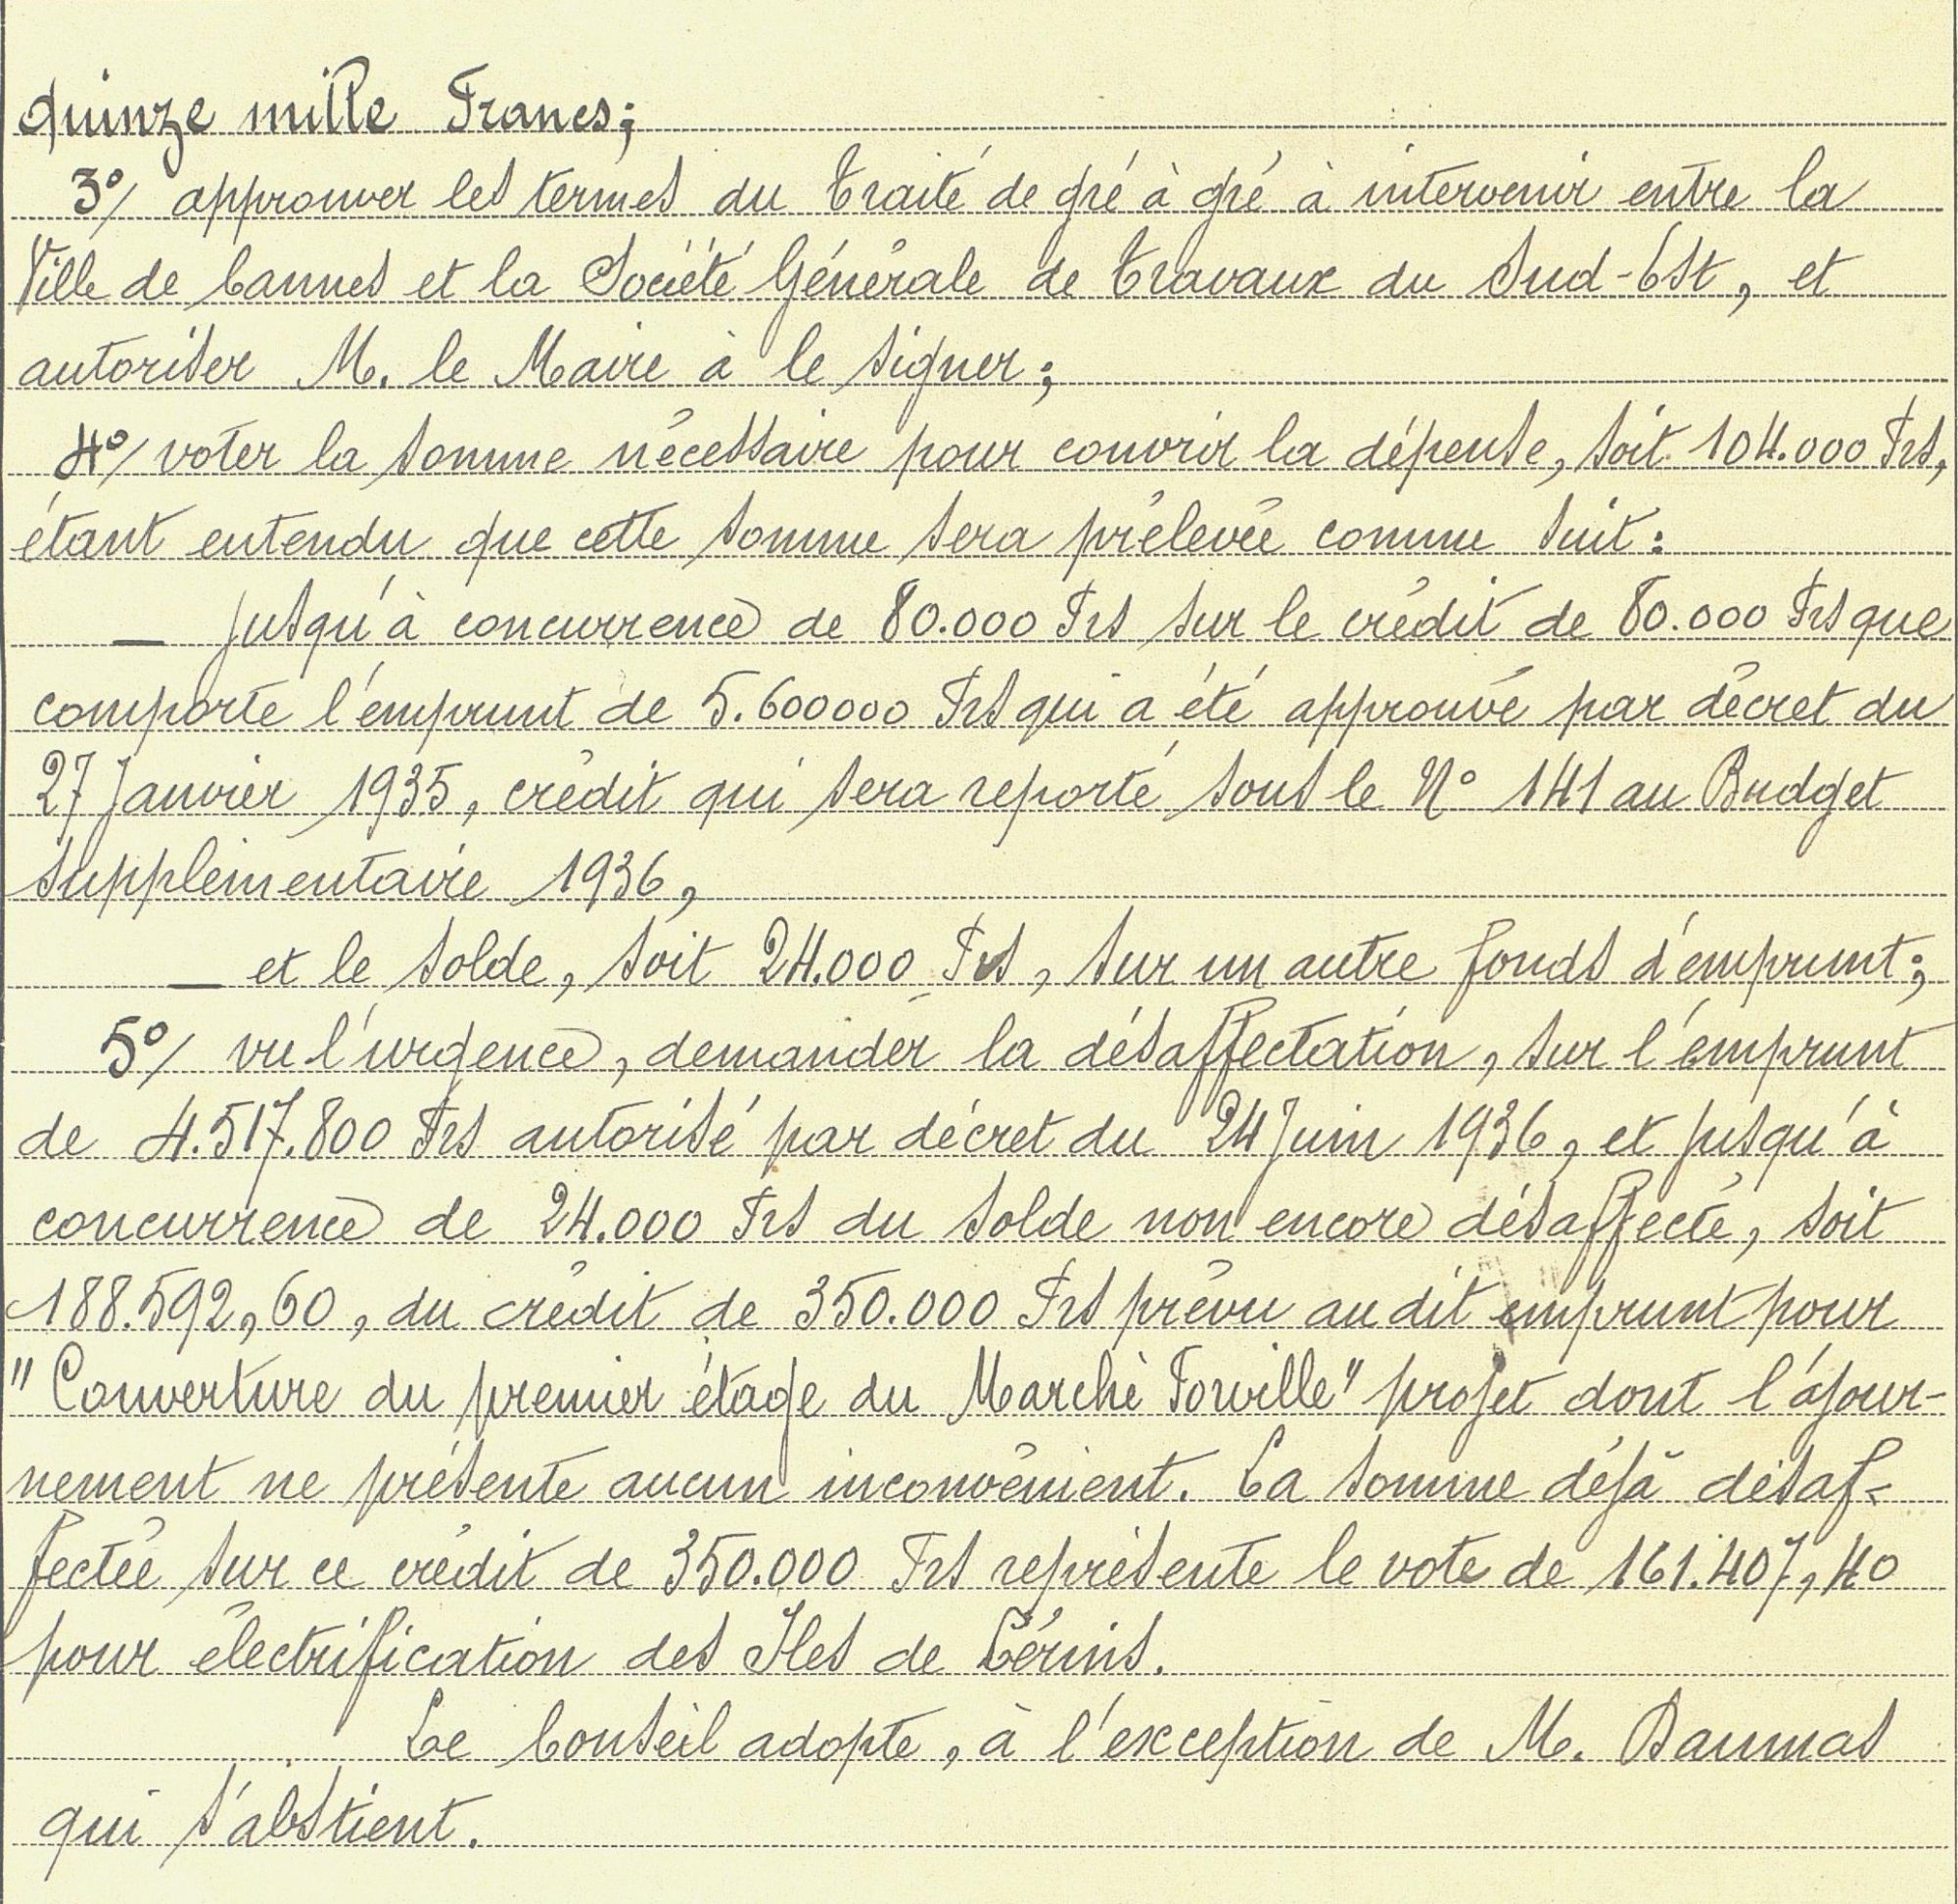 quinze mille Francs;
3°/ approuver les termes du Traité de gré à gré à intervenir entre la
Ville de Cannes et la Société Générale de Travaux du Sud-Est, et
autoriser M. le Maire à le signer;
4°/ voter la somme nécessaire pour couvrir la dépense, soit 104.000 Frs,
étant entendu que cette somme sera prélevée comme suit:
— jusqu'à concurrence de 80.000 Frs sur le crédit de 80.000 Frs que
comporte l'emprunt de 5.600000 Frs qui a été approuvé par décret du
27 Janvier 1935, crédit qui sera reporté sous le N° 141 au Budget
supplémentaire 1936,
— et le solde, soit 24.000 Frs, sur un autre fonds d'emprunt;
5°/ vu l'urgence, demander la désaffectation, sur l'emprunt
de 4.517.800 Frs autorisé par décret du 24 Juin 1936, et jusqu'à
concurrence de 24.000 Frs du solde non encore désaffecté, soit
188.592,60, du crédit de 350.000 Frs prévu au dit emprunt pour
"Couverture du premier étage du Marché Forville" projet dont l'ajour-
nement ne présente aucun inconvénient. La somme déjà désaf-
fectée sur ce crédit de 350.000 Frs représente le vote de 161.407,40
pour électrification des Iles de Lérins.
Le Conseil adopte, à l'exception de M. Daumas
qui s'abstient.